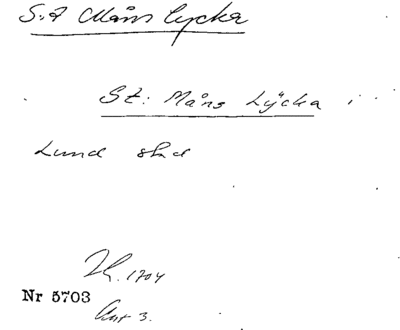 S:t Måns lycka
St: Måns Lÿcka i
Lund stad
1704
Nr 5703
Akt 3.